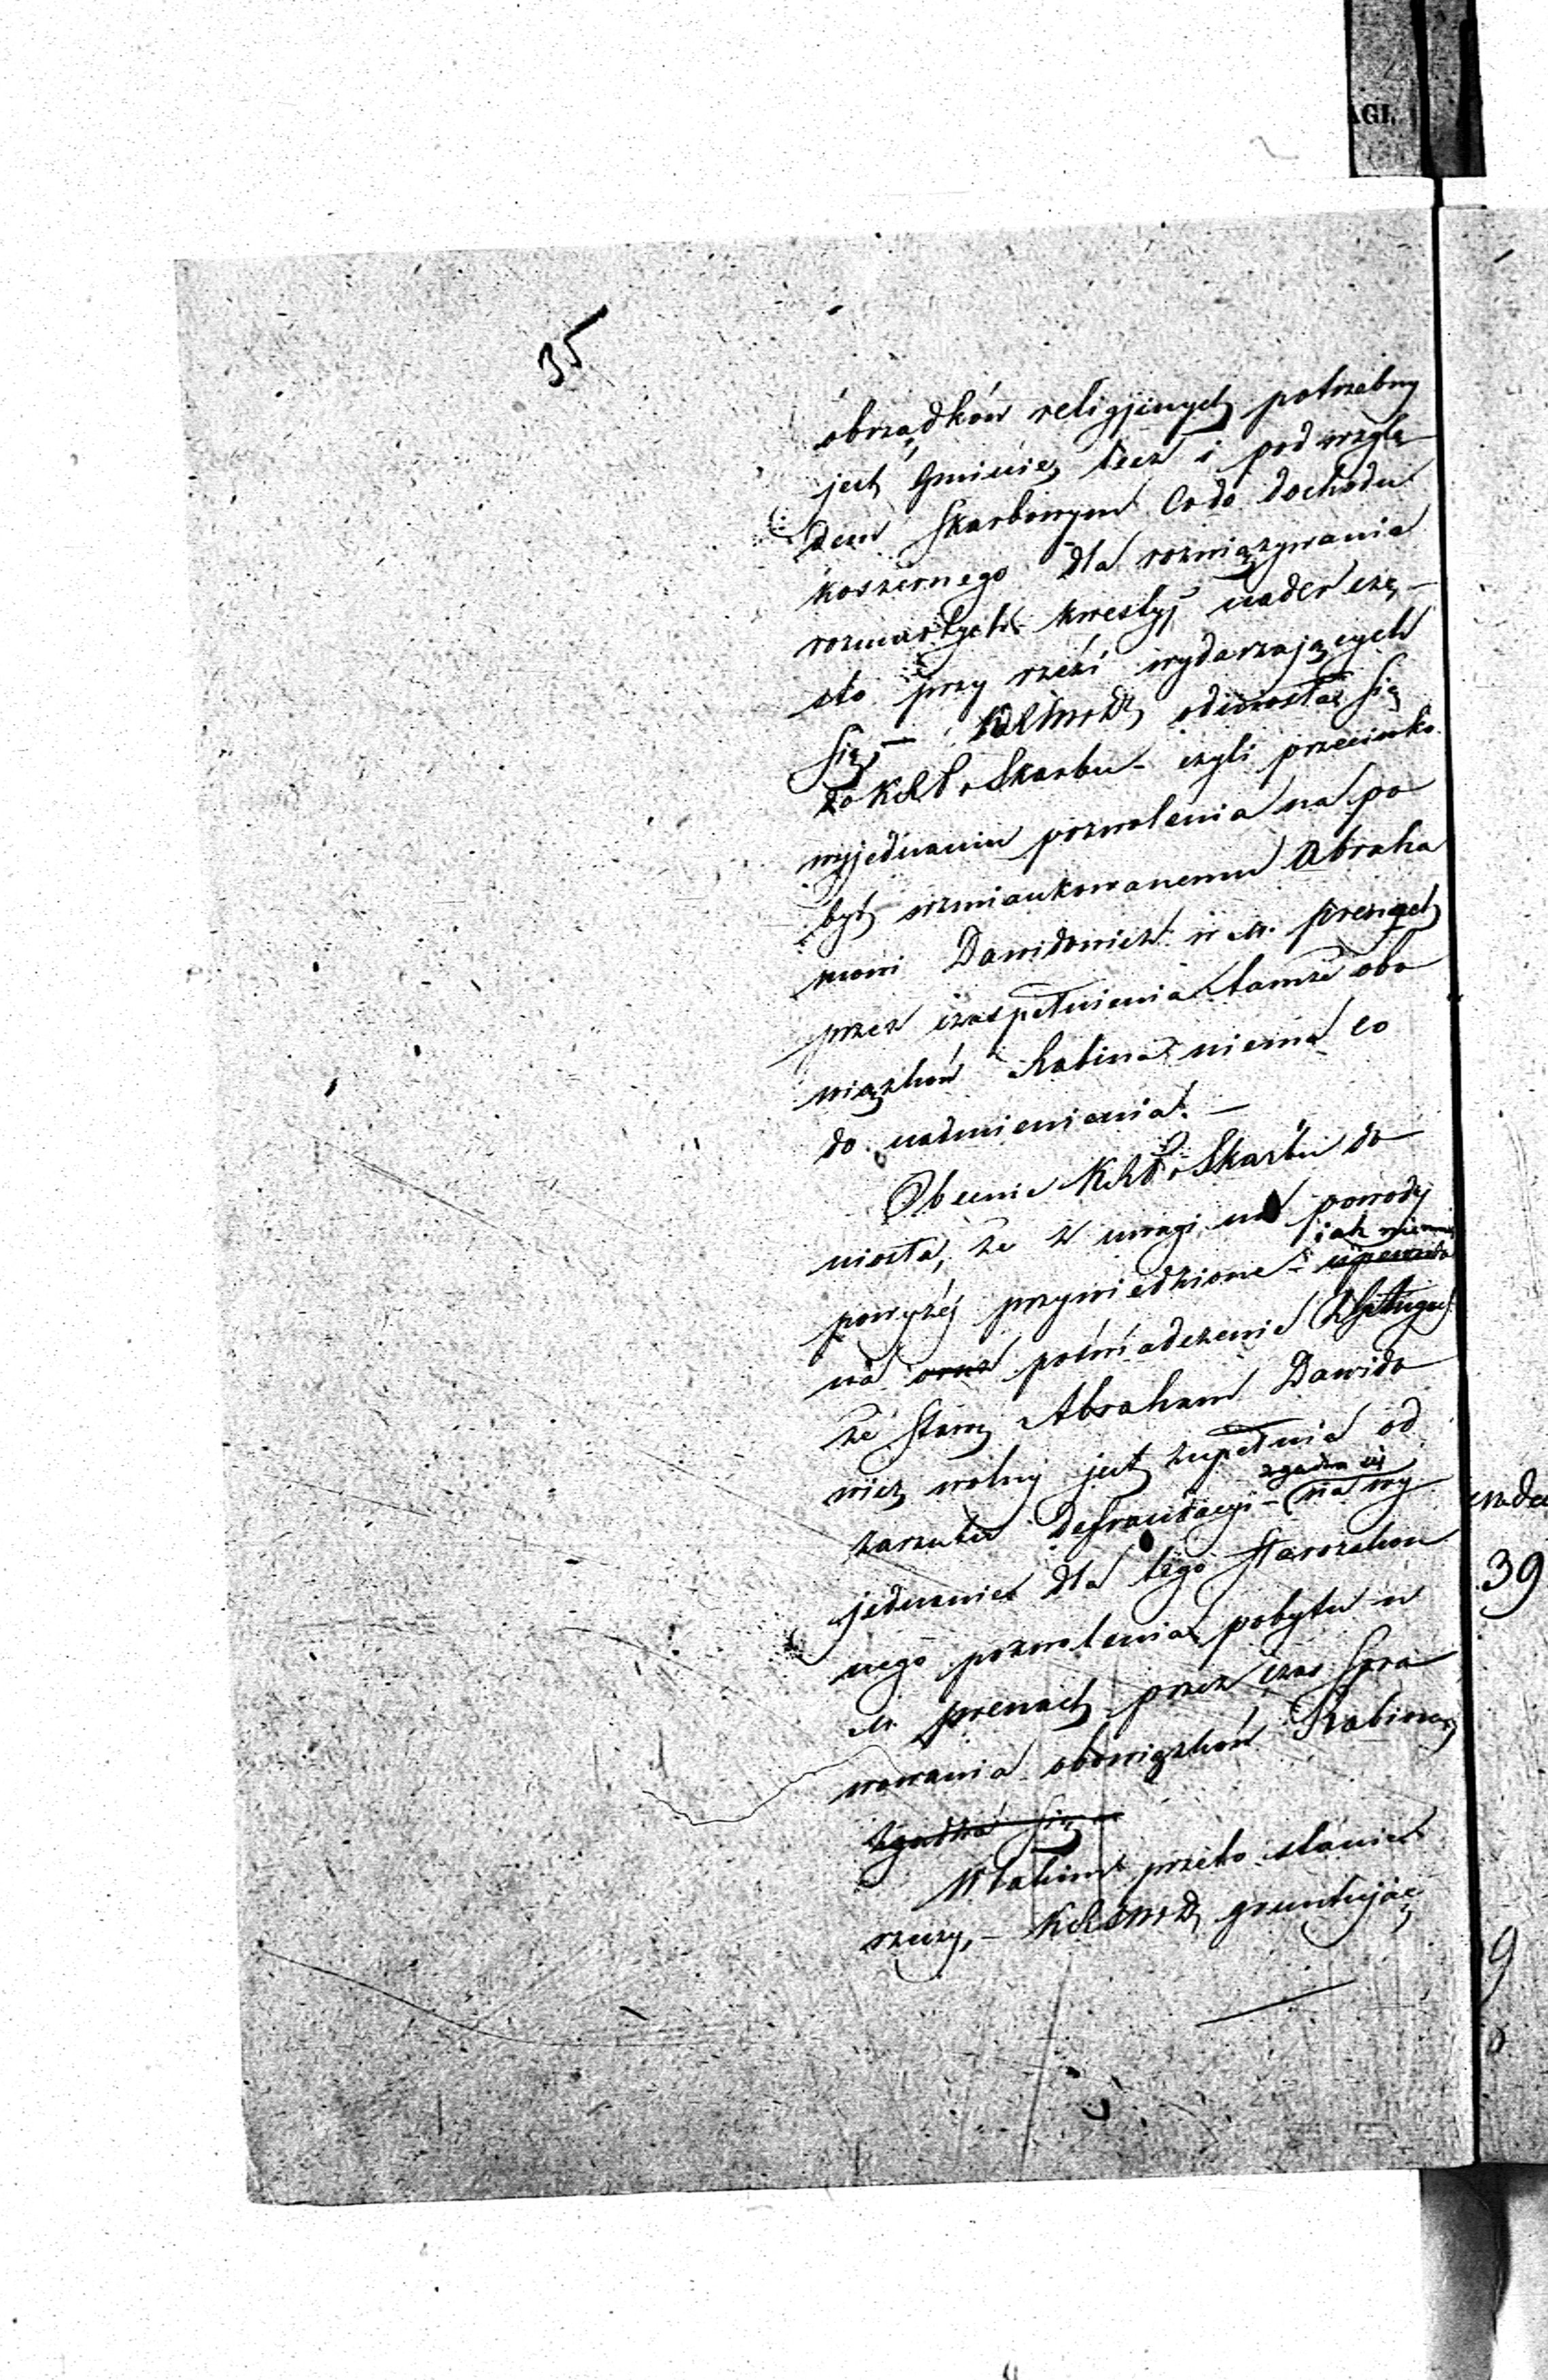 35
óbrządków religijnych potrzebny
jest Gminie, lecz i pod wzglę
dem Skarbowym Co do dochodu
koszernego dla rozwiązywania
rozmaitych kwestyj nader czę-
sto przy rzezi wydarzających
się, — odniosła się
do Skarbu - czyli przeciwko
wyjednaniu pozwolenia na po
byt wzmiankowanemu Abraha
mowi Dawidowicz w m. Prenach
przez czas pełnienia tamże obo
wiązków Rabina niema co
do nadmienienia. —
Obecnie Skarbu do
niosła, że z uwagi na powody
jak niemniej
powyżéj przywiedzione -
na oraz poświadczenie
że Starz. Abraham Dawido
wicz wolny jest zupełnie od
zgadza się
zarzutu Defraudacyi - na wy
jednanie dla tego Starozakon
nego pozwolenia pobytu w
m. Prenach przez czas spra
wowania obowiązków Rabina,
zgadza się —
W takim przeto stanie
rzeczy, - gruntując
39
9